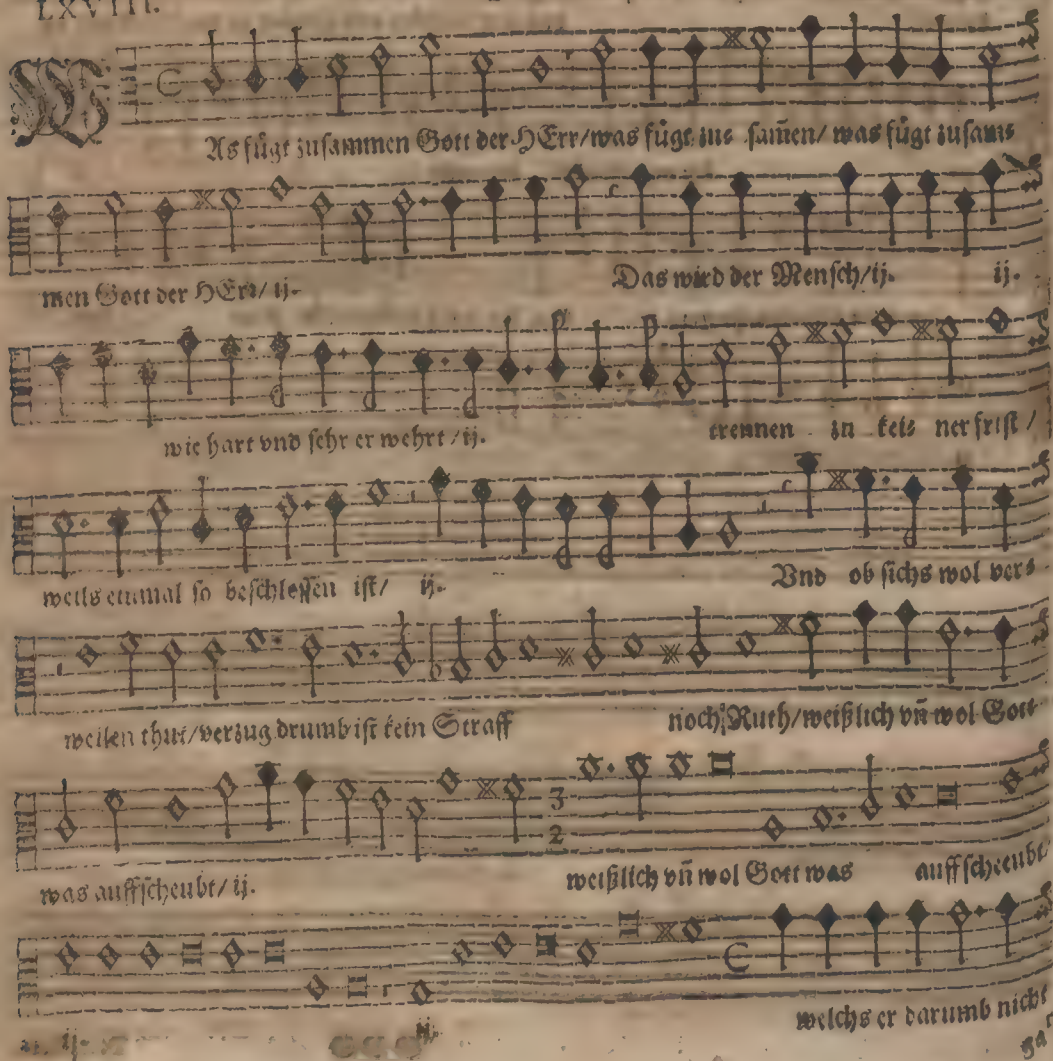 LXVIII.
WAs fügt zusammen Gott der HErr/was fügt zus sam̃en/ was fügt zusams
men Gott der HErr/ ij. Das wird der Mensch/ij. ij.
wie hart vnd sehr er wehrt/ij. trennen zu keis ner frist/
weils einmal so beschlossen ist/ ij. Vnd ob sichs wol vers
weilen thut/verzug drumb ist kein Straff noch Ruth/weißlich vñ wol Gott
3
2
was auffscheubt/ ij. weißlich vñ wol Gott was auffscheubt/
ij. ij. welchs er darumb nicht